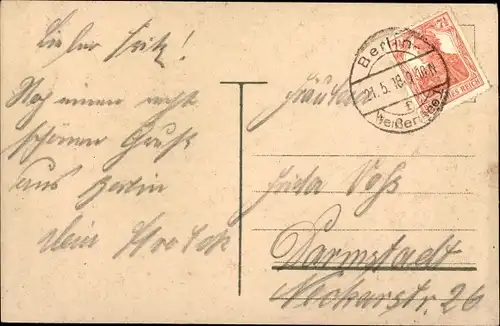 Lieber Fritz!
Noch einen recht
schönen Gruß
aus Berlin
Dein
Fräulein
Frida Voß
Darmstadt
Neckarstr. 26
Berlin-
21.5.18.
Weißensee
7½